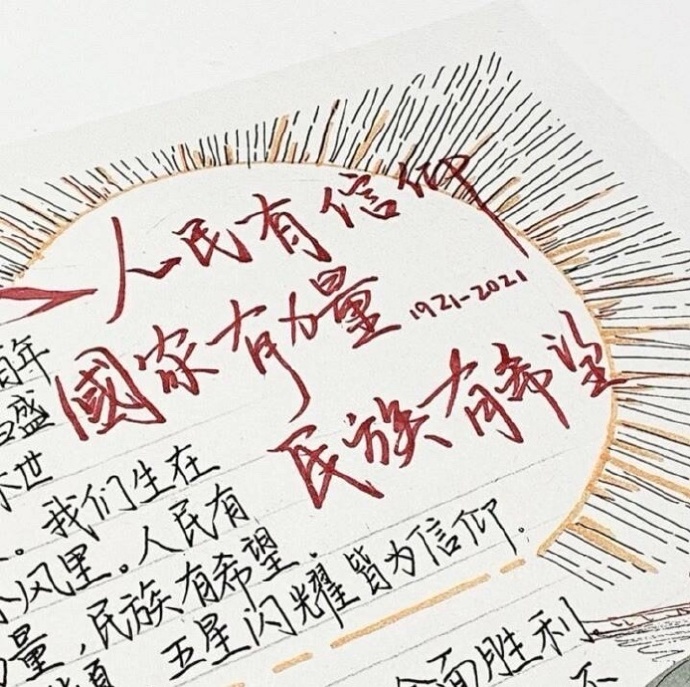 人民有信仰
國家有力量
1921-2021
民族有希望
年
盛
世
我们生在
风里。人民有
量,民族有希望.
五星闪耀皆为信仰.
全面胜利
不